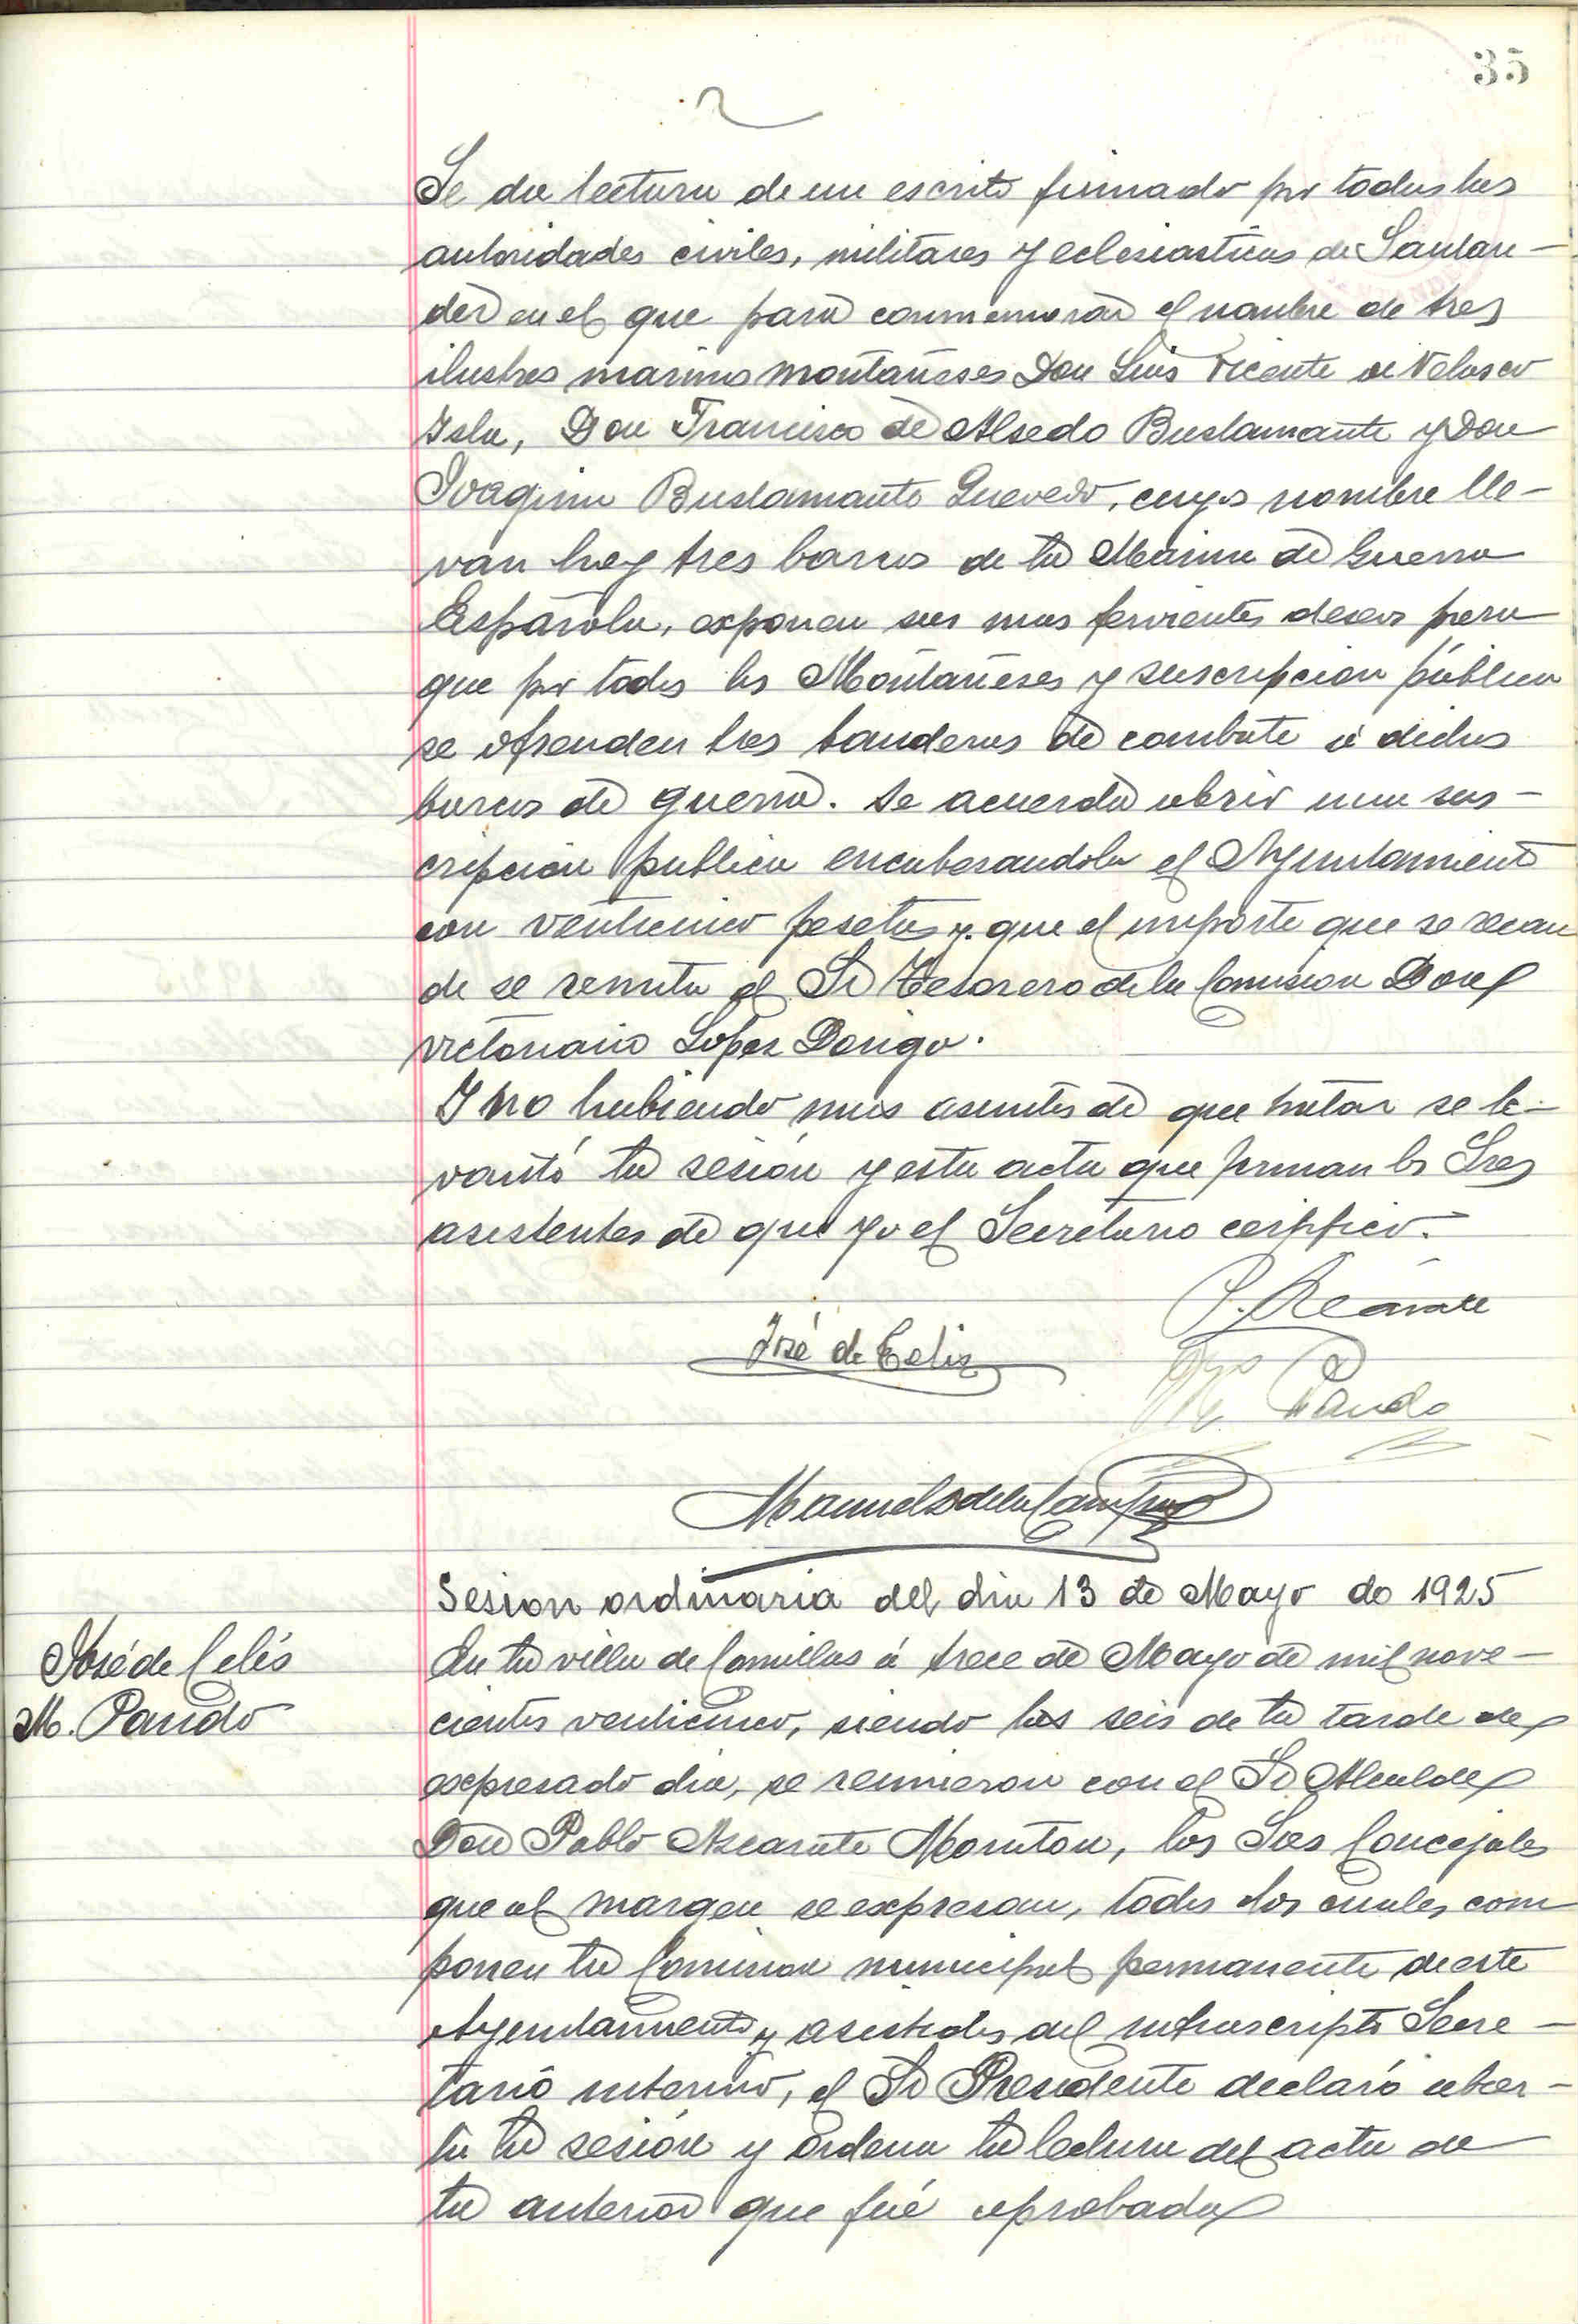 35
Se da lectura de un escrito firmado por todas las
autoridades civiles, militares y eclesiasticas de Santan-
der en el que para conmemorar el nombre de tres
ilustres marinos montañeses Don Luis Vicente de Velasco
Isla, Don Francisco de Alsedo Bustamante y Don
Joaquin Bustamante Quevedo, cuyos nombre lle-
van hoy tres barcos de la Marina de Guerra
Española, exponen sus mas fervientes deseos para
que por todos los Montañeses y suscripcion pública
se ofrenden tres banderas de combate á dichos
barcos de guerra. Se acuerda abrir una sus-
cripcion publica encabezandola el Ayuntamiento
con venticinco pesetas y que el importe que se recau
de se remita al Sr Tesorero de la Comision Don
Victoriano Lopez Doriga.
Y no habiendo mas asuntos de que tratar se le-
vantó la sesión y esta acta que firman los Sres
asistentes de que yo el Secretario certifico.
José de Celis
M. Pando
Sesion ordinaria del dia 13 de Mayo de 1925
José de Celis
M. Pando
En la villa de Comillas á trece de Mayo de mil nove-
cientos venticinco, siendo las seis de la tarde del
expresado dia, se reunieron con el Sr Alcalde
Don Pablo Azcarate los Sres Concejales
que al margen se expresan, todos los cuales com
ponen la Comision municipal permanente de este
Ayuntamiento y asistidos del infrascripto Secre-
tario interino, el Sr Presidente declaró abier-
ta la sesión y ordena la lectura del acta de
la anterior que fué aprobada